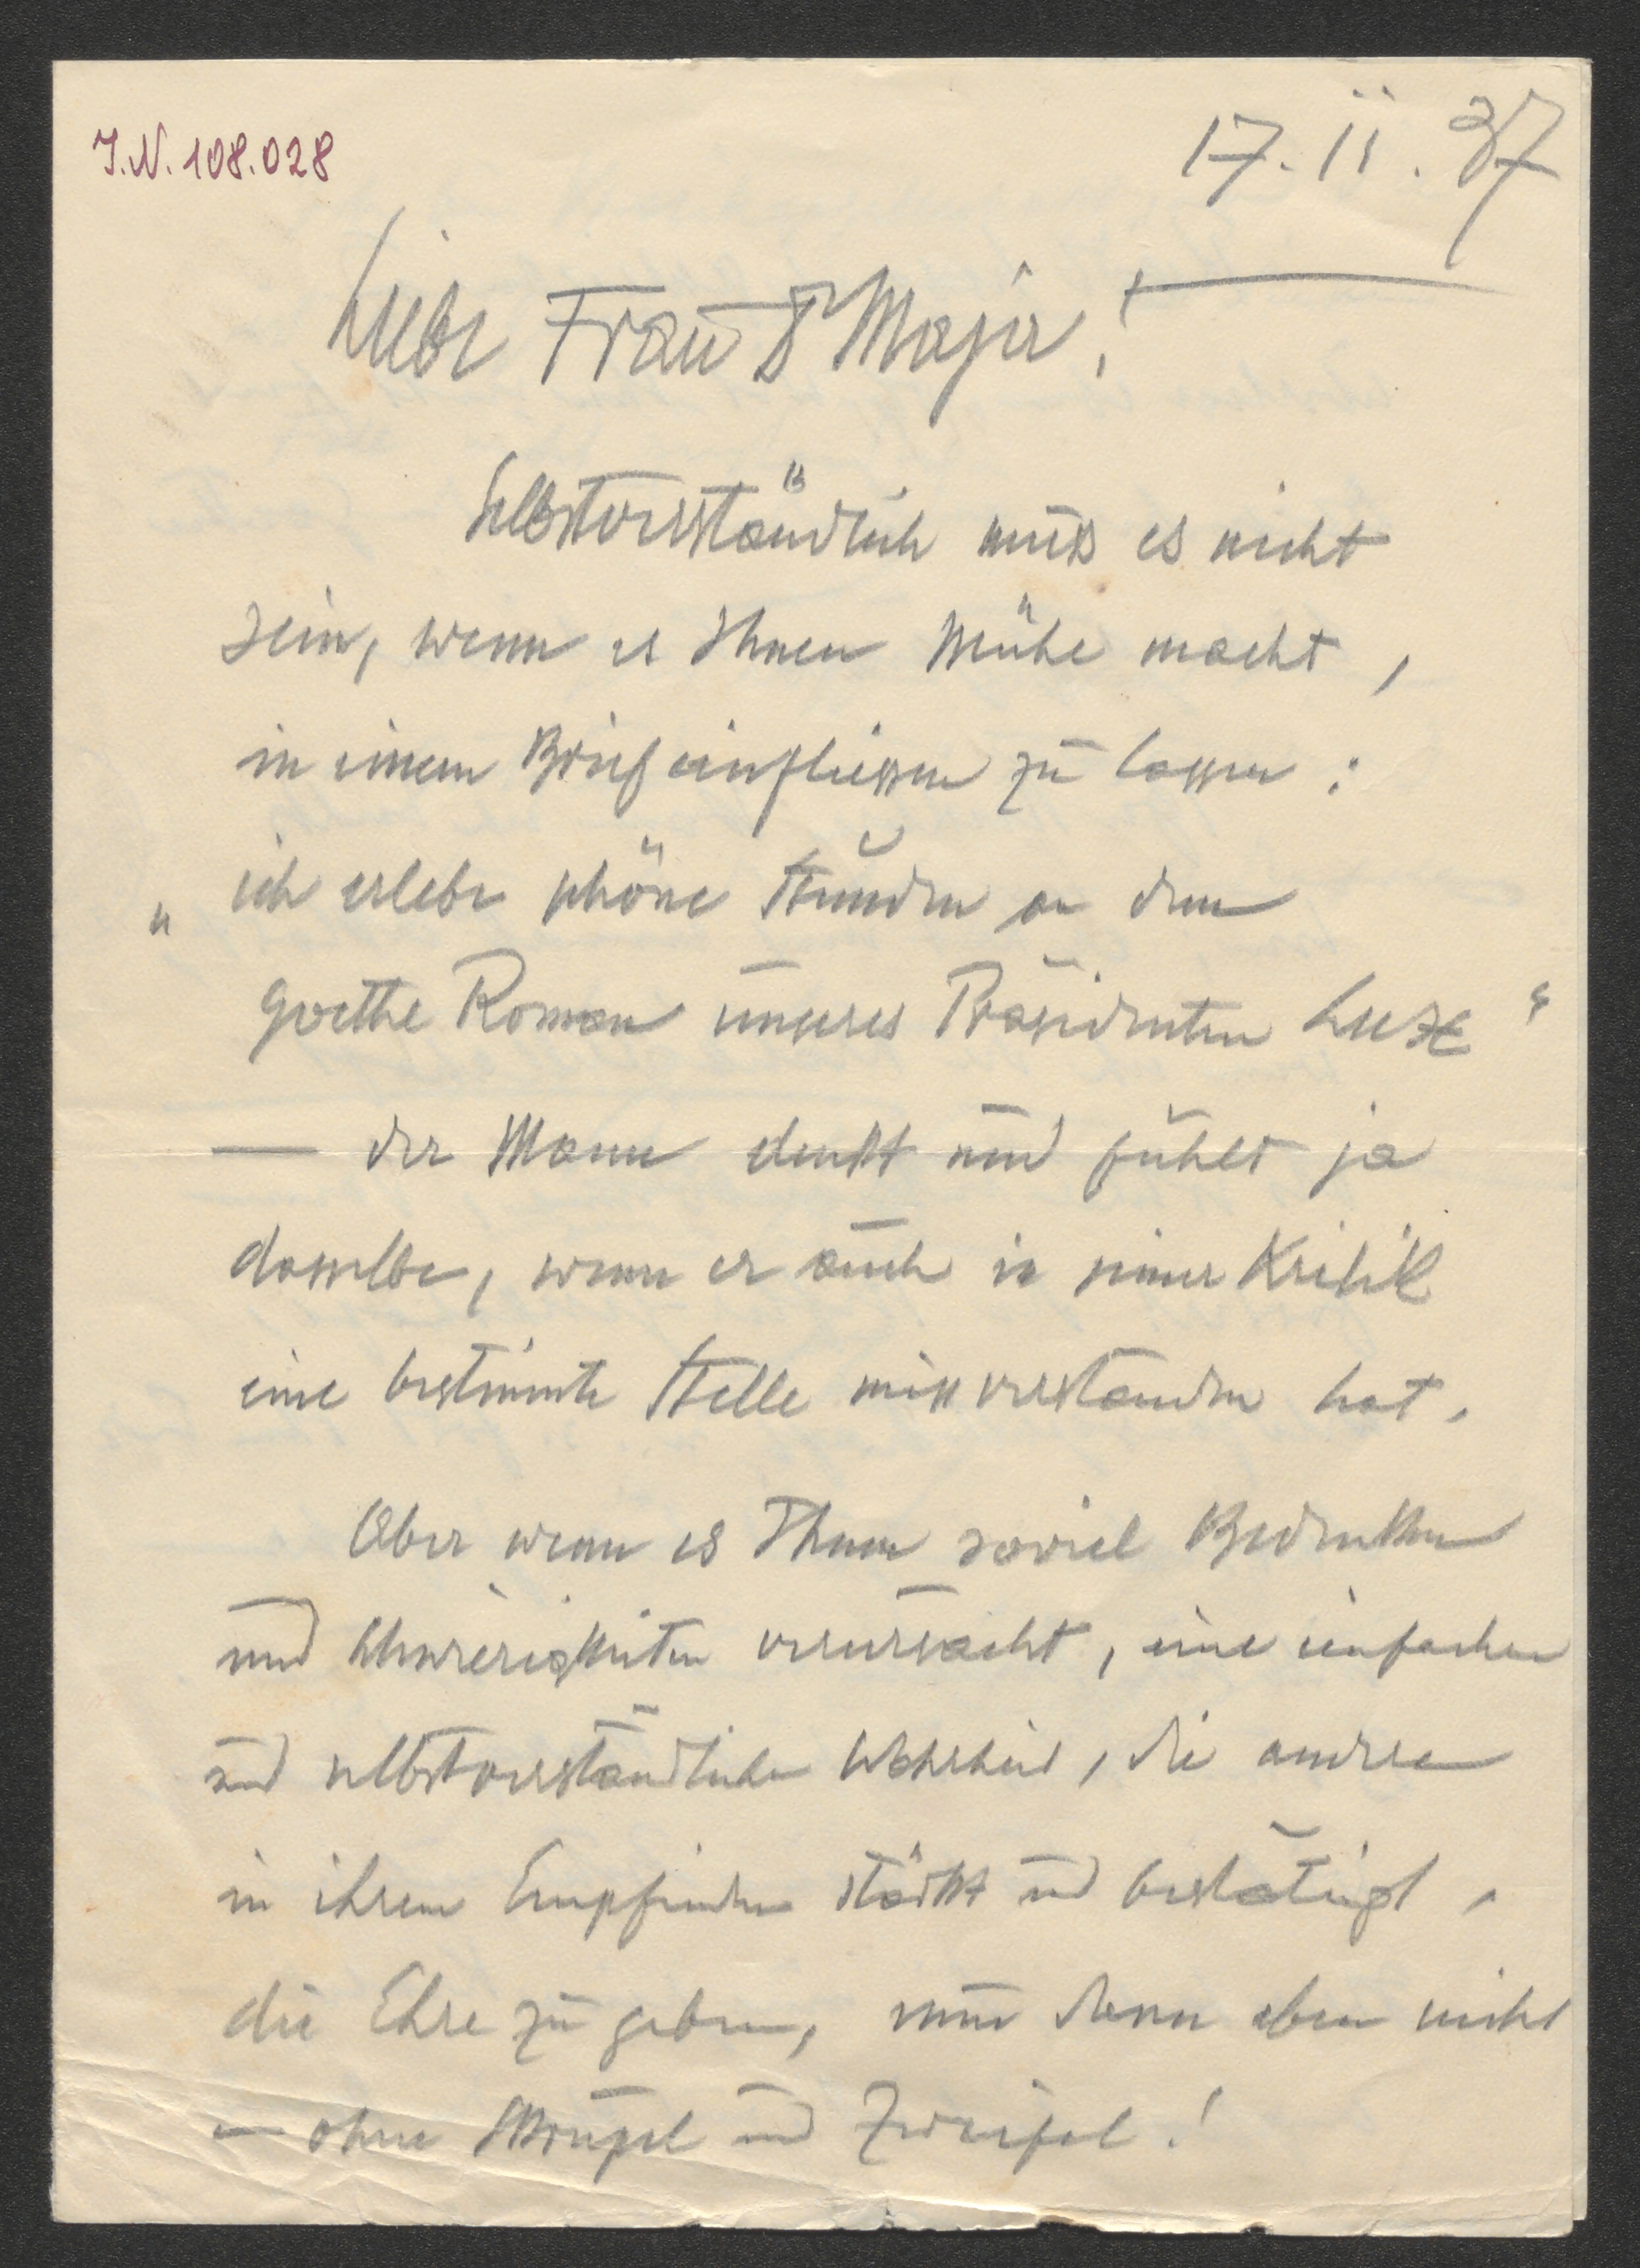 J.N. 108.028
17.II.37
Liebe Frau Dr Major!
Selbstverständlich muss es nicht
sein, wenn es Ihnen Mühe macht,
in einem Brief einfliessen zu lassen:
„ich erlebe schöne Stunden an dem
Goethe Roman unseres Präsidenten
— der Mann denkt und fühlt ja
dasselbe, wenn er auch in seiner Kritik
eine bestimmte Stelle missverstanden hat.
Aber wenn es Ihnen soviel Bedenken
und Schwierigkeiten verursacht, eine einfachen
und selbstverständlichen Wahrheit, die andere
in ihrem Empfinden stärkt und bestätigt,
die Ehre zu geben, nun dann eben nicht
— ohne Skrupel und Zweifel!